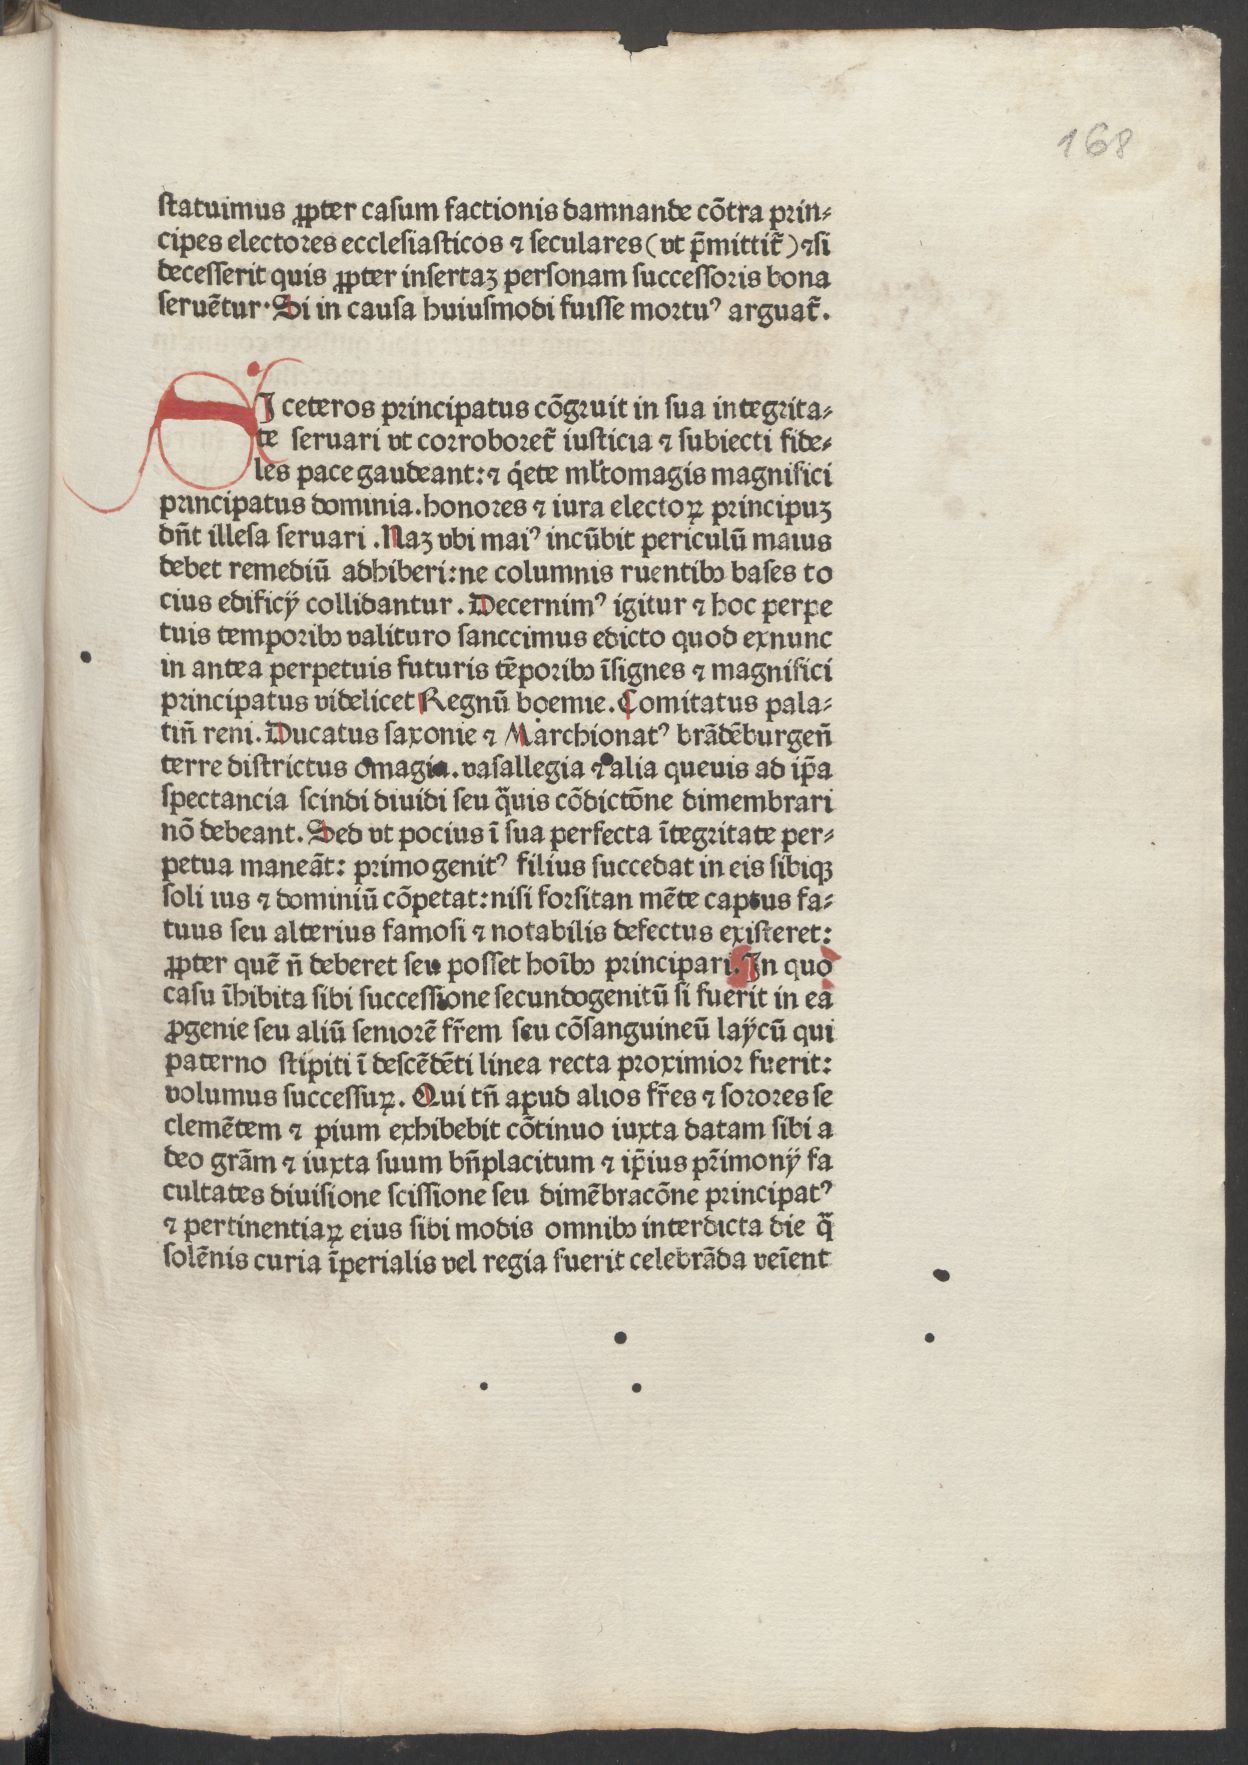 168
statuimus ꝓpter casum factionis damnande cõtra prin⸗
cipes electores ecclesiasticos ⁊ seculares (vt p̃mittit̃) ⁊ si
decesserit quis ꝓpter insertaꝫ personam successoris bona
seruẽtur. Si in causa huiusmodi fuisse mortuꝰ arguat̃.
SI ceteros principatus cõgruit in sua integrita⸗
te seruari vt corroboret̃ iusticia ⁊ subiecti fide⸗
les pace gaudeant: ⁊ q̃ete ml̃tomagis magnifici
principatus dominia. honores ⁊ iura electoꝝ principuꝫ
dñt illesa seruari. Naꝫ vbi maiꝰ incũbit periculũ maius
debet remediũ adhiberi: ne columnis ruentibꝫ bases to
cius edificÿ collidantur. Decernimꝰ igitur ⁊ hoc perpe
tuis temporibꝫ valituro sanccimus edicto quod exnunc
in antea perpetuis futuris tẽporibꝫ ĩsignes ⁊ magnifici
principatus videlicet Regnũ boemie. Comitatus pala⸗
tiñ reni. Ducatus saxonie ⁊ Marchionatꝰ brãdẽburgeñ
terre districtus omagia. vasallegia ⁊ alia queuis ad ip̃a
spectancia scindi diuidi seu q̃uis cõdictõne dimembrari
nõ debeant. Sed vt pocius ĩ sua perfecta ĩtegritate per⸗
petua maneãt: primogenitꝰ filius succedat in eis sibiqꝫ
soli ius ⁊ dominiũ cõpetat: nisi forsitan mẽte captus fa⸗
tuus seu alterius famosi ⁊ notabilis defectus existeret:
ꝓpter quẽ ñ deberet seu posset hoĩbꝫ principari. In quo
casu ĩhibita sibi successione secundogenitũ si fuerit in ea
ꝓgenie seu aliũ seniorẽ fr̃em seu cõsanguineũ laÿcũ qui
paterno stipiti ĩ descẽdẽti linea recta proximior fuerit:
volumus successuꝝ. Qui tñ apud alios fr̃es ⁊ sorores se
clemẽtem ⁊ pium exhibebit cõtinuo iuxta datam sibi a
deo grãm ⁊ iuxta suum bñplacitum ⁊ ip̃ius pr̃imonÿ fa
cultates diuisione scissione seu dimẽbracõne principatꝰ
⁊ pertinentiaꝝ eius sibi modis omnibꝫ interdicta die q̃
solẽnis curia ĩperialis vel regia fuerit celebrãda veĩent